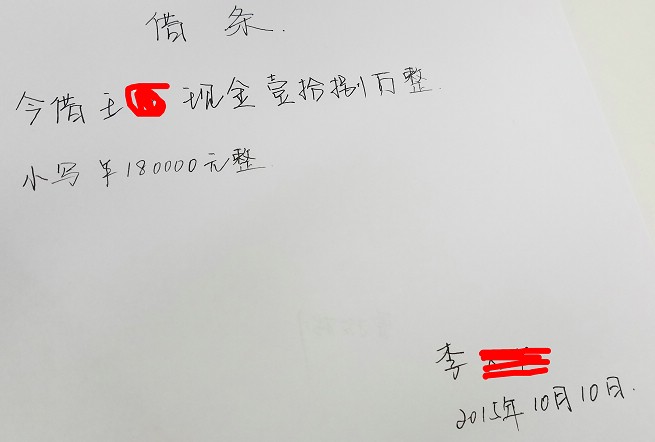 借条.
今借王 现金壹拾捌万整.
小写¥180000元整.
李
2015年10月10日.